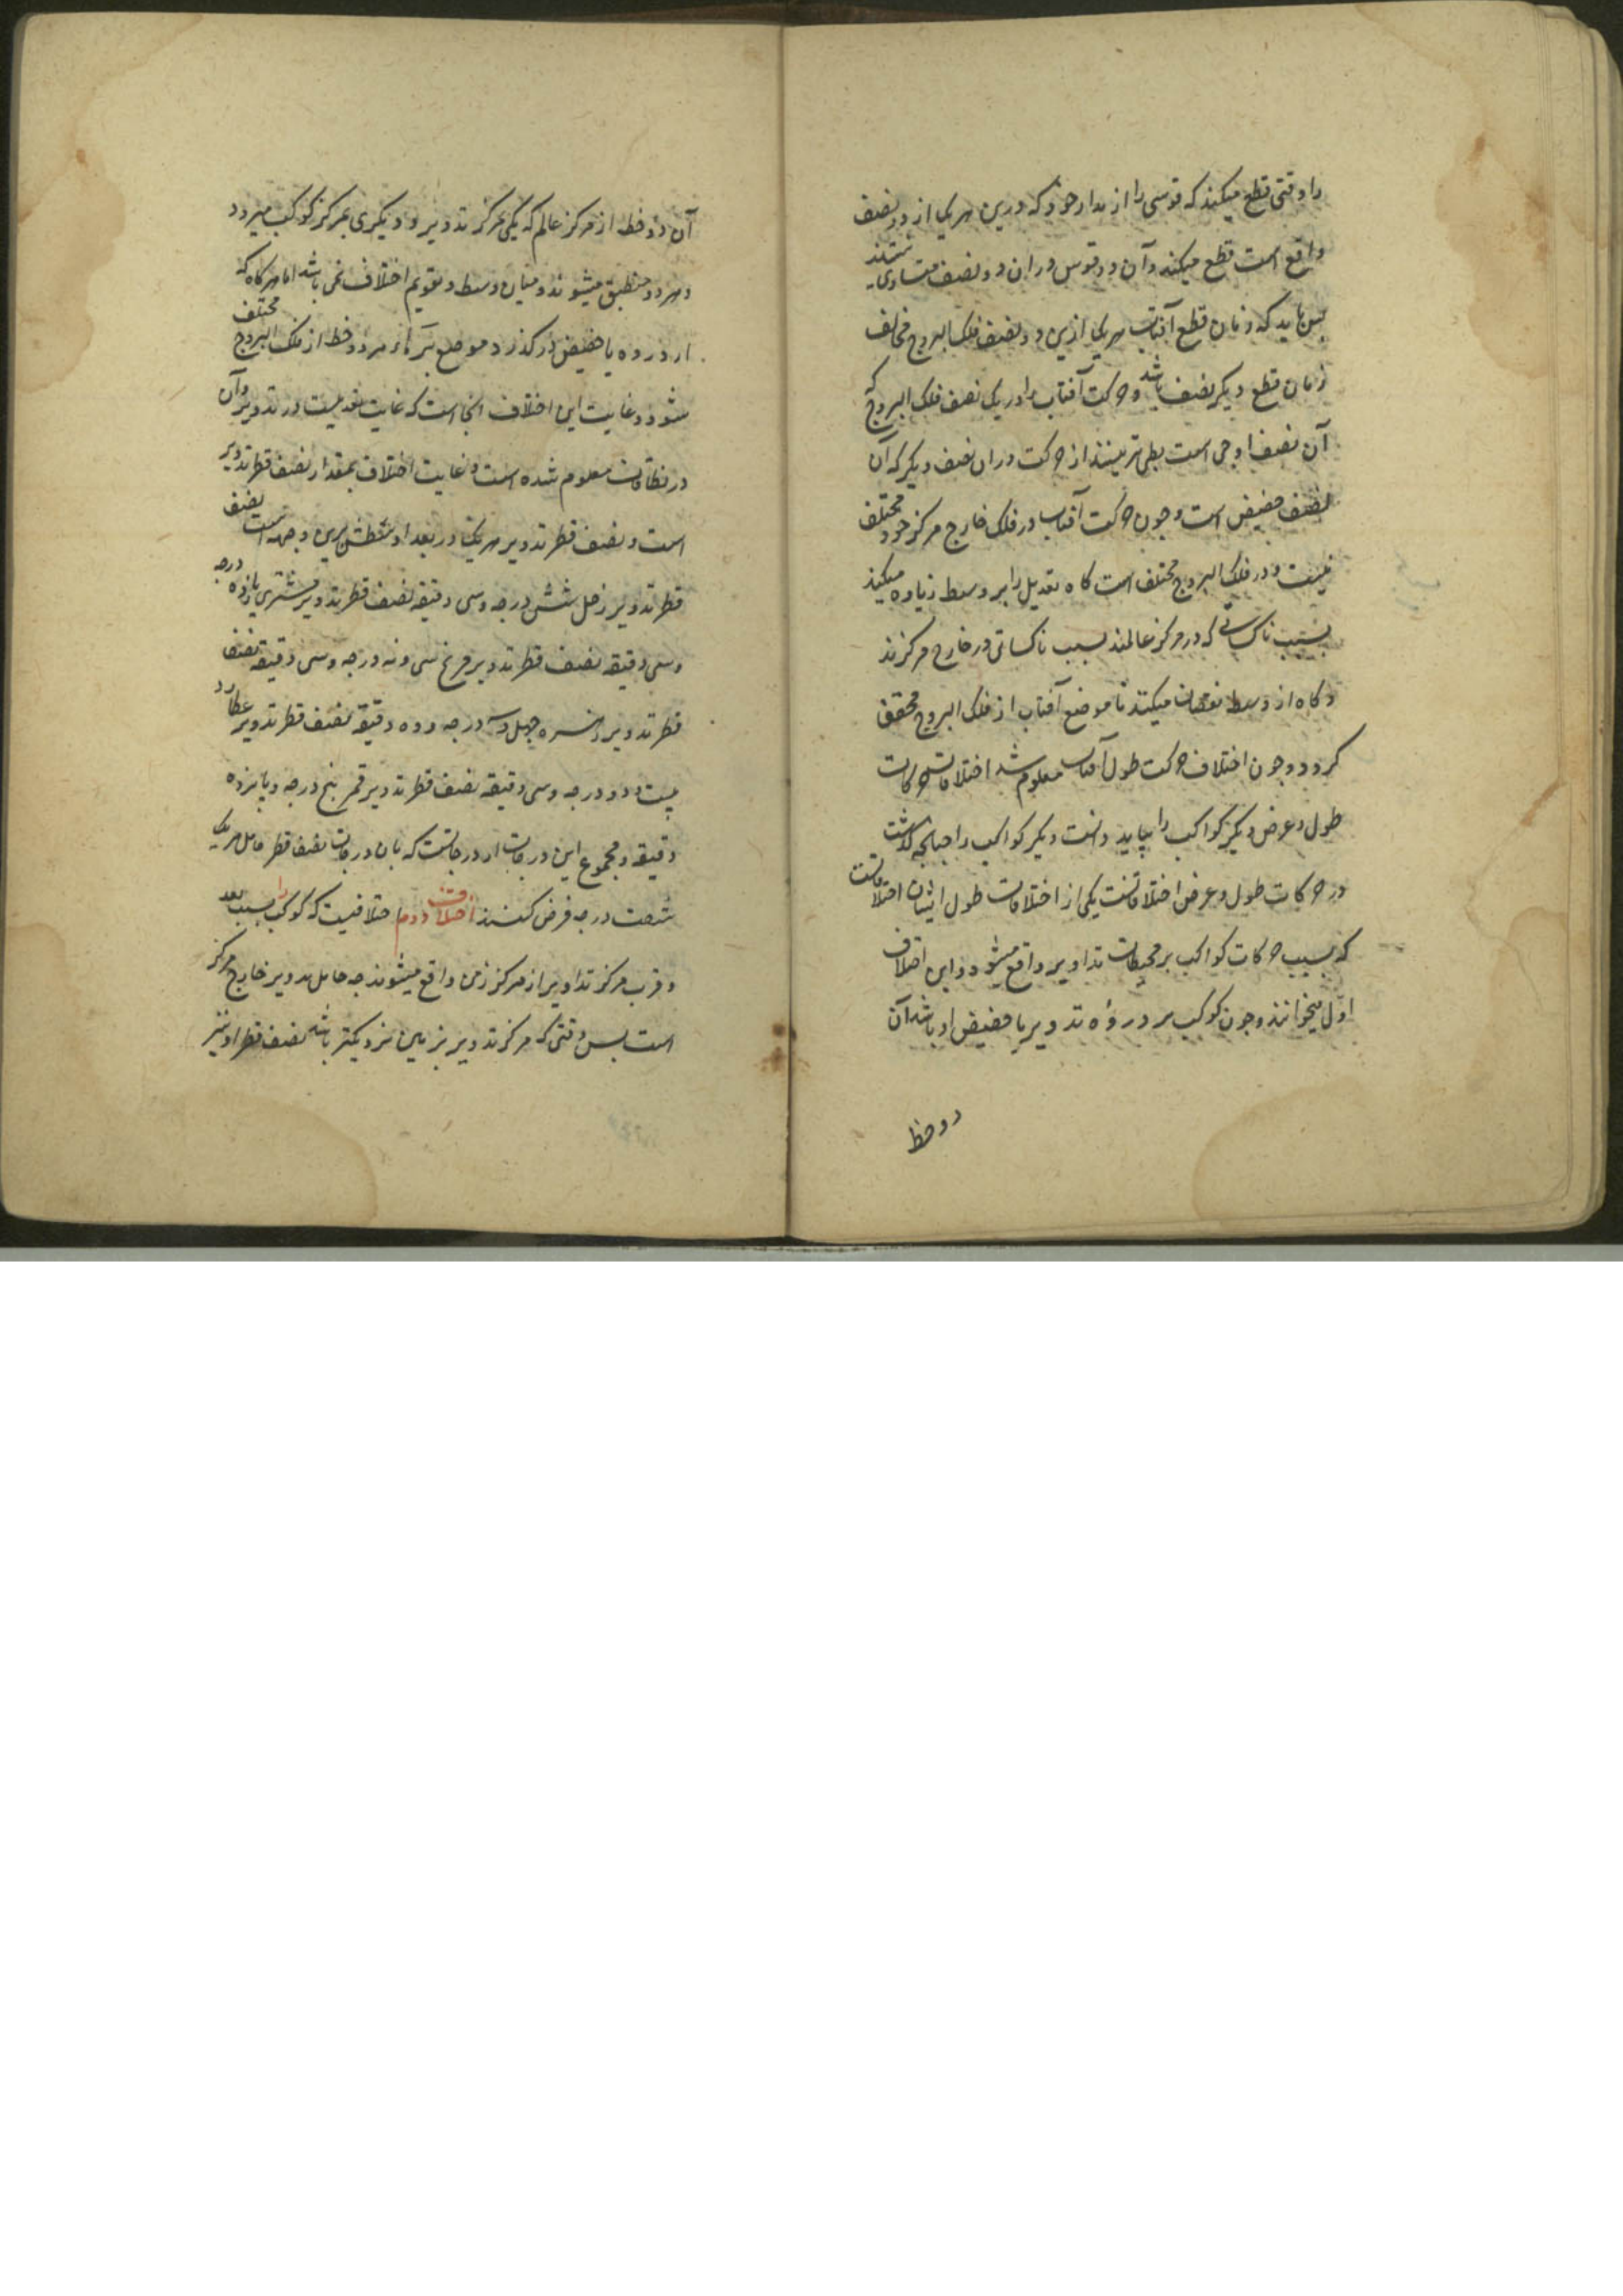 را وقتی قطع میکند که قوسی را از مدار خود که درین هریک از دو نصف
واقع است قطع میکند و آن دو قوس در ان دو نصف متساوی نیستند
پس باید که زمان قطع آفتاب هریک ازین دو نصف فلک البروج مخالف
زمان قطع دیگر نصف باشد و حرکت آفتاب را در یک نصف فلک البروج که
آن نصف اوجی است بطی تر بینند از حرکت در ان نصف دیگر که آن
نصف حضیض است و چون حرکت آفتاب در فلک خارج مرکز خود مختلف
نیست و در فلک البروج مختلف است کاه تعدیل را بر وسط زیاده میکنند
بسبب که در مرکز عالمند بسبب در خارج مرکزند
و کاه از وسط نقصان میکنند تا موضع آفتاب از فلک البروج محقق
کردد و چون اختلاف حرکت طول آفتاب معلوم شد اختلافات حرکات
طول و عرض دیکر کواکب را بباید دانست دیکر کواکب را چنانچه کذشت
در حرکات طول و عرض اختلافاتست یکی از اختلافات طول ایشان اختلافاتست
که بسبب حرکات کواکب بر محیطات تداویر واقع میشود و این اختلاف
اول میخوانند و چون کوکب بر دروه تدویر یا حضیض او باشد آن
دو خط
آن دو خط از مرکز عالم که یکی بمرکز تدویر و دیکری بمرکز کوکب میرود
و هر دو منطبق میشوند و میان وسط و تقویم اختلاف نمی باشد اما هرکاه که
از دروه یا حضیض در کذرد موضع هر دو خط از فلک البروج مختلف
شود و غایت این اختلاف انجا است که غایت بعدیست در تدویر و آن
در نطاقات معلوم شده است و غایت اختلاف بمقدار نصف قطر تدویر
است و نصف قطر تدویر هریک در بعد اوسطش برین وجه است نصف
قطر تدویر زحل شش درجه و سی دقیقه نصف قطر تدویر مشتری یازده درجه
و سی دقیقه نصف قطر تدویر مریخ سی و نه درجه و سی دقیقه نصف
قطر تدویر زهره چهل و سه درجه و ده دقیقه نصف قطر تدویر عطارد
بیست و دو درجه و سی دقیقه نصف قطر تدویر قمر پنج درجه و پانزده
دقیقه و مجموع این درجات از درجاتست که بان درجات نصف قطر حامل هریک
شصت درجه فرض کنند اختلاف دوم اختلافیست که کوکب را بسبب بعد
و قرب مرکز تداویر از مرکز زمین واقع میشوند چه حامل تدویر خارج مرکز
است پس وقتی که مرکز تدویر بزمین نزدیکتر باشد نصف قطر او نیز